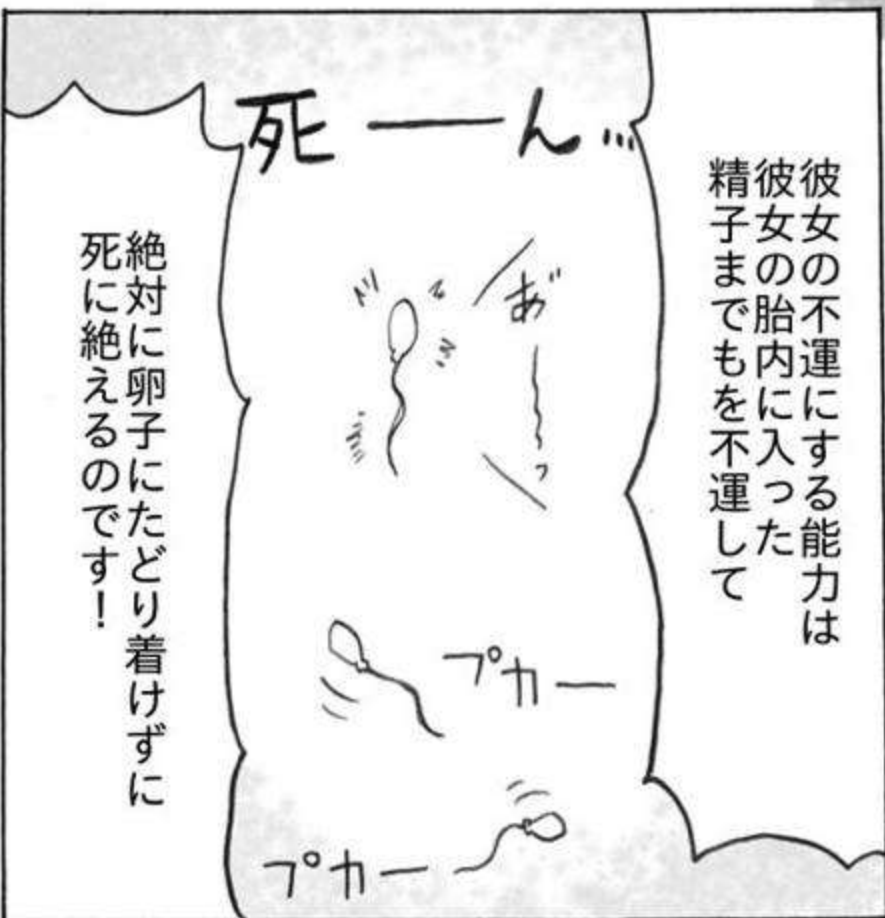 彼女の不運にする能力は
彼女の胎内に入った
精子までもを不運して
死――ん…
あ゛――っ
プカー
プカー
絶対に卵子にたどり着けずに
死に絶えるのです!